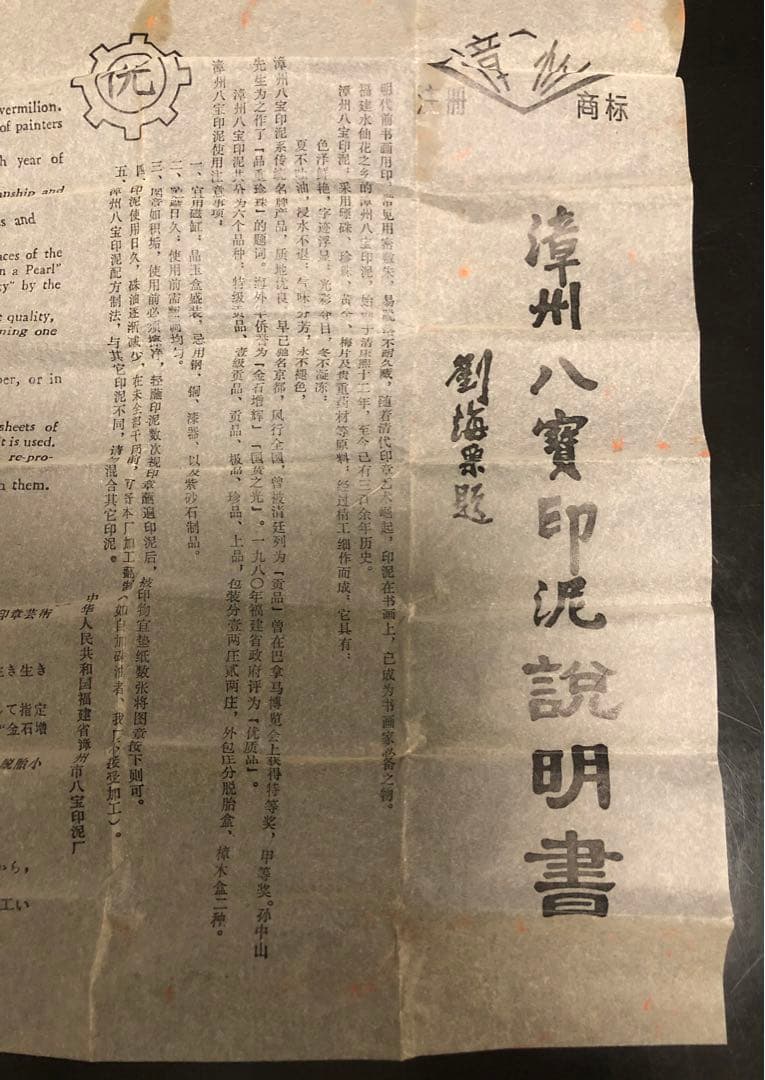 漳州
注册 商标
漳州八寶印泥説明書
劉海粟題
明代前书画用印
易
不耐久藏，随着清代印章艺术崛起，印泥在书画上，已成为书画家必备之物。
福建水仙花之乡的漳州八宝印泥，始
于清康熙十二年，至今已有三百余年历史。
漳州八宝印泥，采用硃砂、珍珠、黄金、梅片及贵重药材等原料，经过精工细作而成，它具有：
色泽鲜艳，字迹浮显，光彩夺目，冬不凝冻；
夏不吐油，浸水不退，气味芬芳，永不褪色，
漳州八宝印泥系传统名牌产品，质地优良，早已驰名京都，风行全国，曾被清廷列为「贡品」曾在巴拿马博览会上获得特等奖，甲等奖。孙中山
先生为之作了「品重珍珠」的题词。海外华侨誉为「金石增辉」「国货之光」。一九八〇年福建省政府评为「优质品」。
漳州八宝印泥共分为六个品种：特级贡品、壹级贡品、贡品、极品、珍品、上品，包装分壹两庄贰两庄，外包庄分脱胎盒、樟木盒二种。
漳州八宝印泥使用注意事项：
一、宜用磁缸，晶玉盒盛装，忌用钢、铜、漆器、以及紫砂石制品。
二、
日久，使用前需
调均匀。
三、图章如积垢，使用前必须
净，轻蘸印泥数次视印章蘸遍印泥后，被印物宜垫纸数张将图章按下则可。
四、印泥使用日久，硃油逐渐减少，在未全部干涸前，可寄本厂加工翻制（如自加硃油者，我厂不接受加工）。
五、漳州八宝印泥配方制法，与其它印泥不同，请勿混合其它印泥。
中华人民共和国福建省漳州市八宝印泥厂
优
vermilion.
of painters
h year of
anship and
s and
aces of the
n a Pearl"
ty" by the
e quality,
ning one
per, or in
sheets of
it is used.
re-pro-
h them.
印章芸術
生き生き
して指定
"金石増
脱胎小
から，
工い